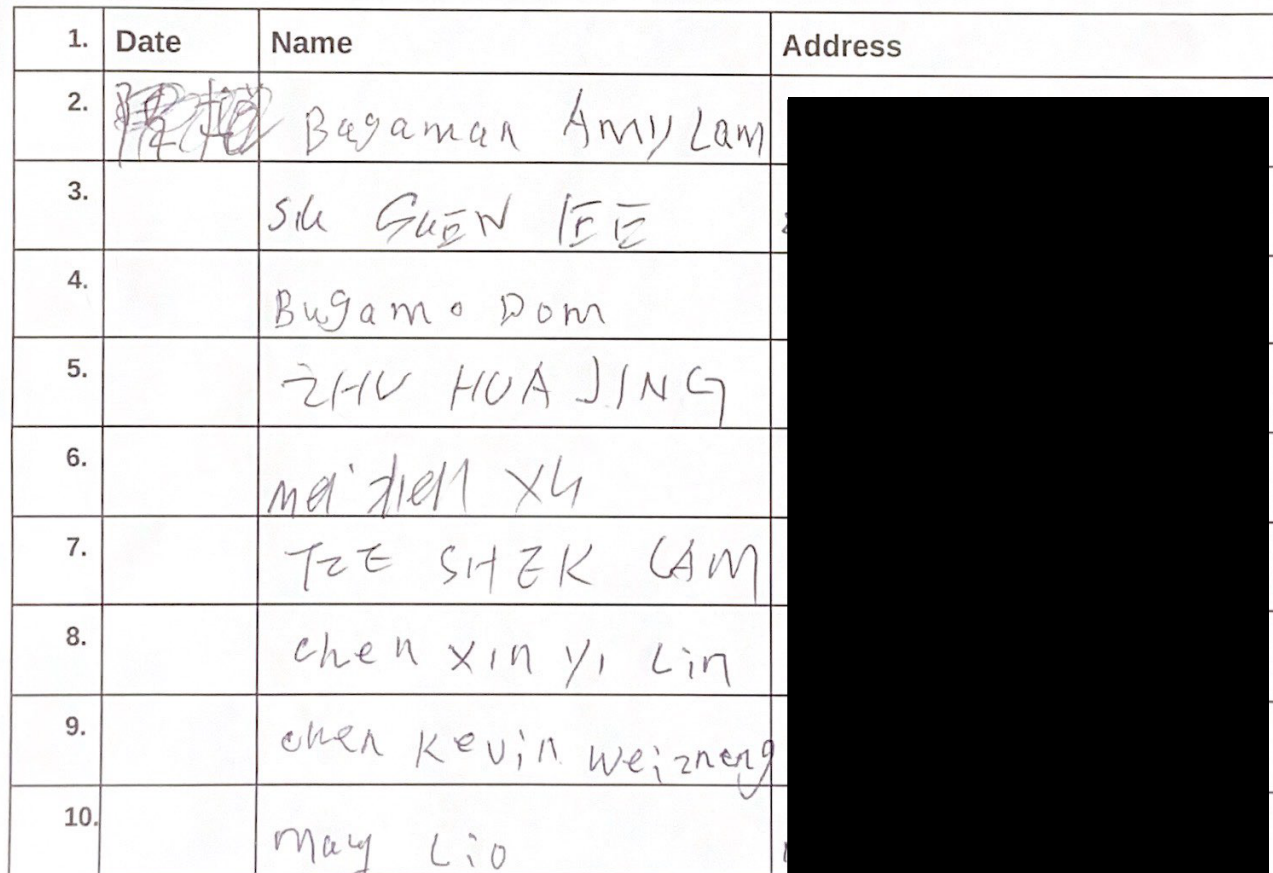 1. Date Name Address
2. Bagaman Amy Lam
3. GUEN
4. Bugamo Dom
5. ZHU HUA JING
6. mei
7. TZE SHEK LAM
8. chen xin yi Lin
9. chen Kevin Weizheng
10. may Lio